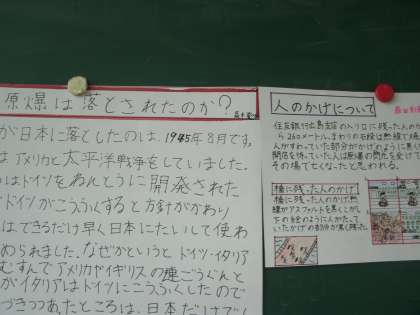 原爆は落とされたのか?
が日本に落としたのは、1945年8月です。
はアメリカと太平洋戦争をしていました。
はドイツをねんとうに開発された
ドイツがこうふくすると方針がかわり
はできるだけ早く日本にたいして使わ
められました。なぜかというと ドイツ・イタリア
むすんでアメリカやイギリスの連ごうぐんと
がイタリアはドイツにこうふくしたので
づきつつあたところは、日本だけで
人のかげについて
住友銀行広島支店のトリロに残った人のか
ら260メートル、まわりの石段は熱線で焼
人がすわっていた部分がかげのように黒く
開店を待っていた人は原爆の閃光を受けて
その場で亡くなったと思われる。
橋に残った人のかげ
橋に残った人のかげ、熱
線がアスファルトを黒くこがし
下の絵のように人がたって
いたかげの部分が黒く残った。